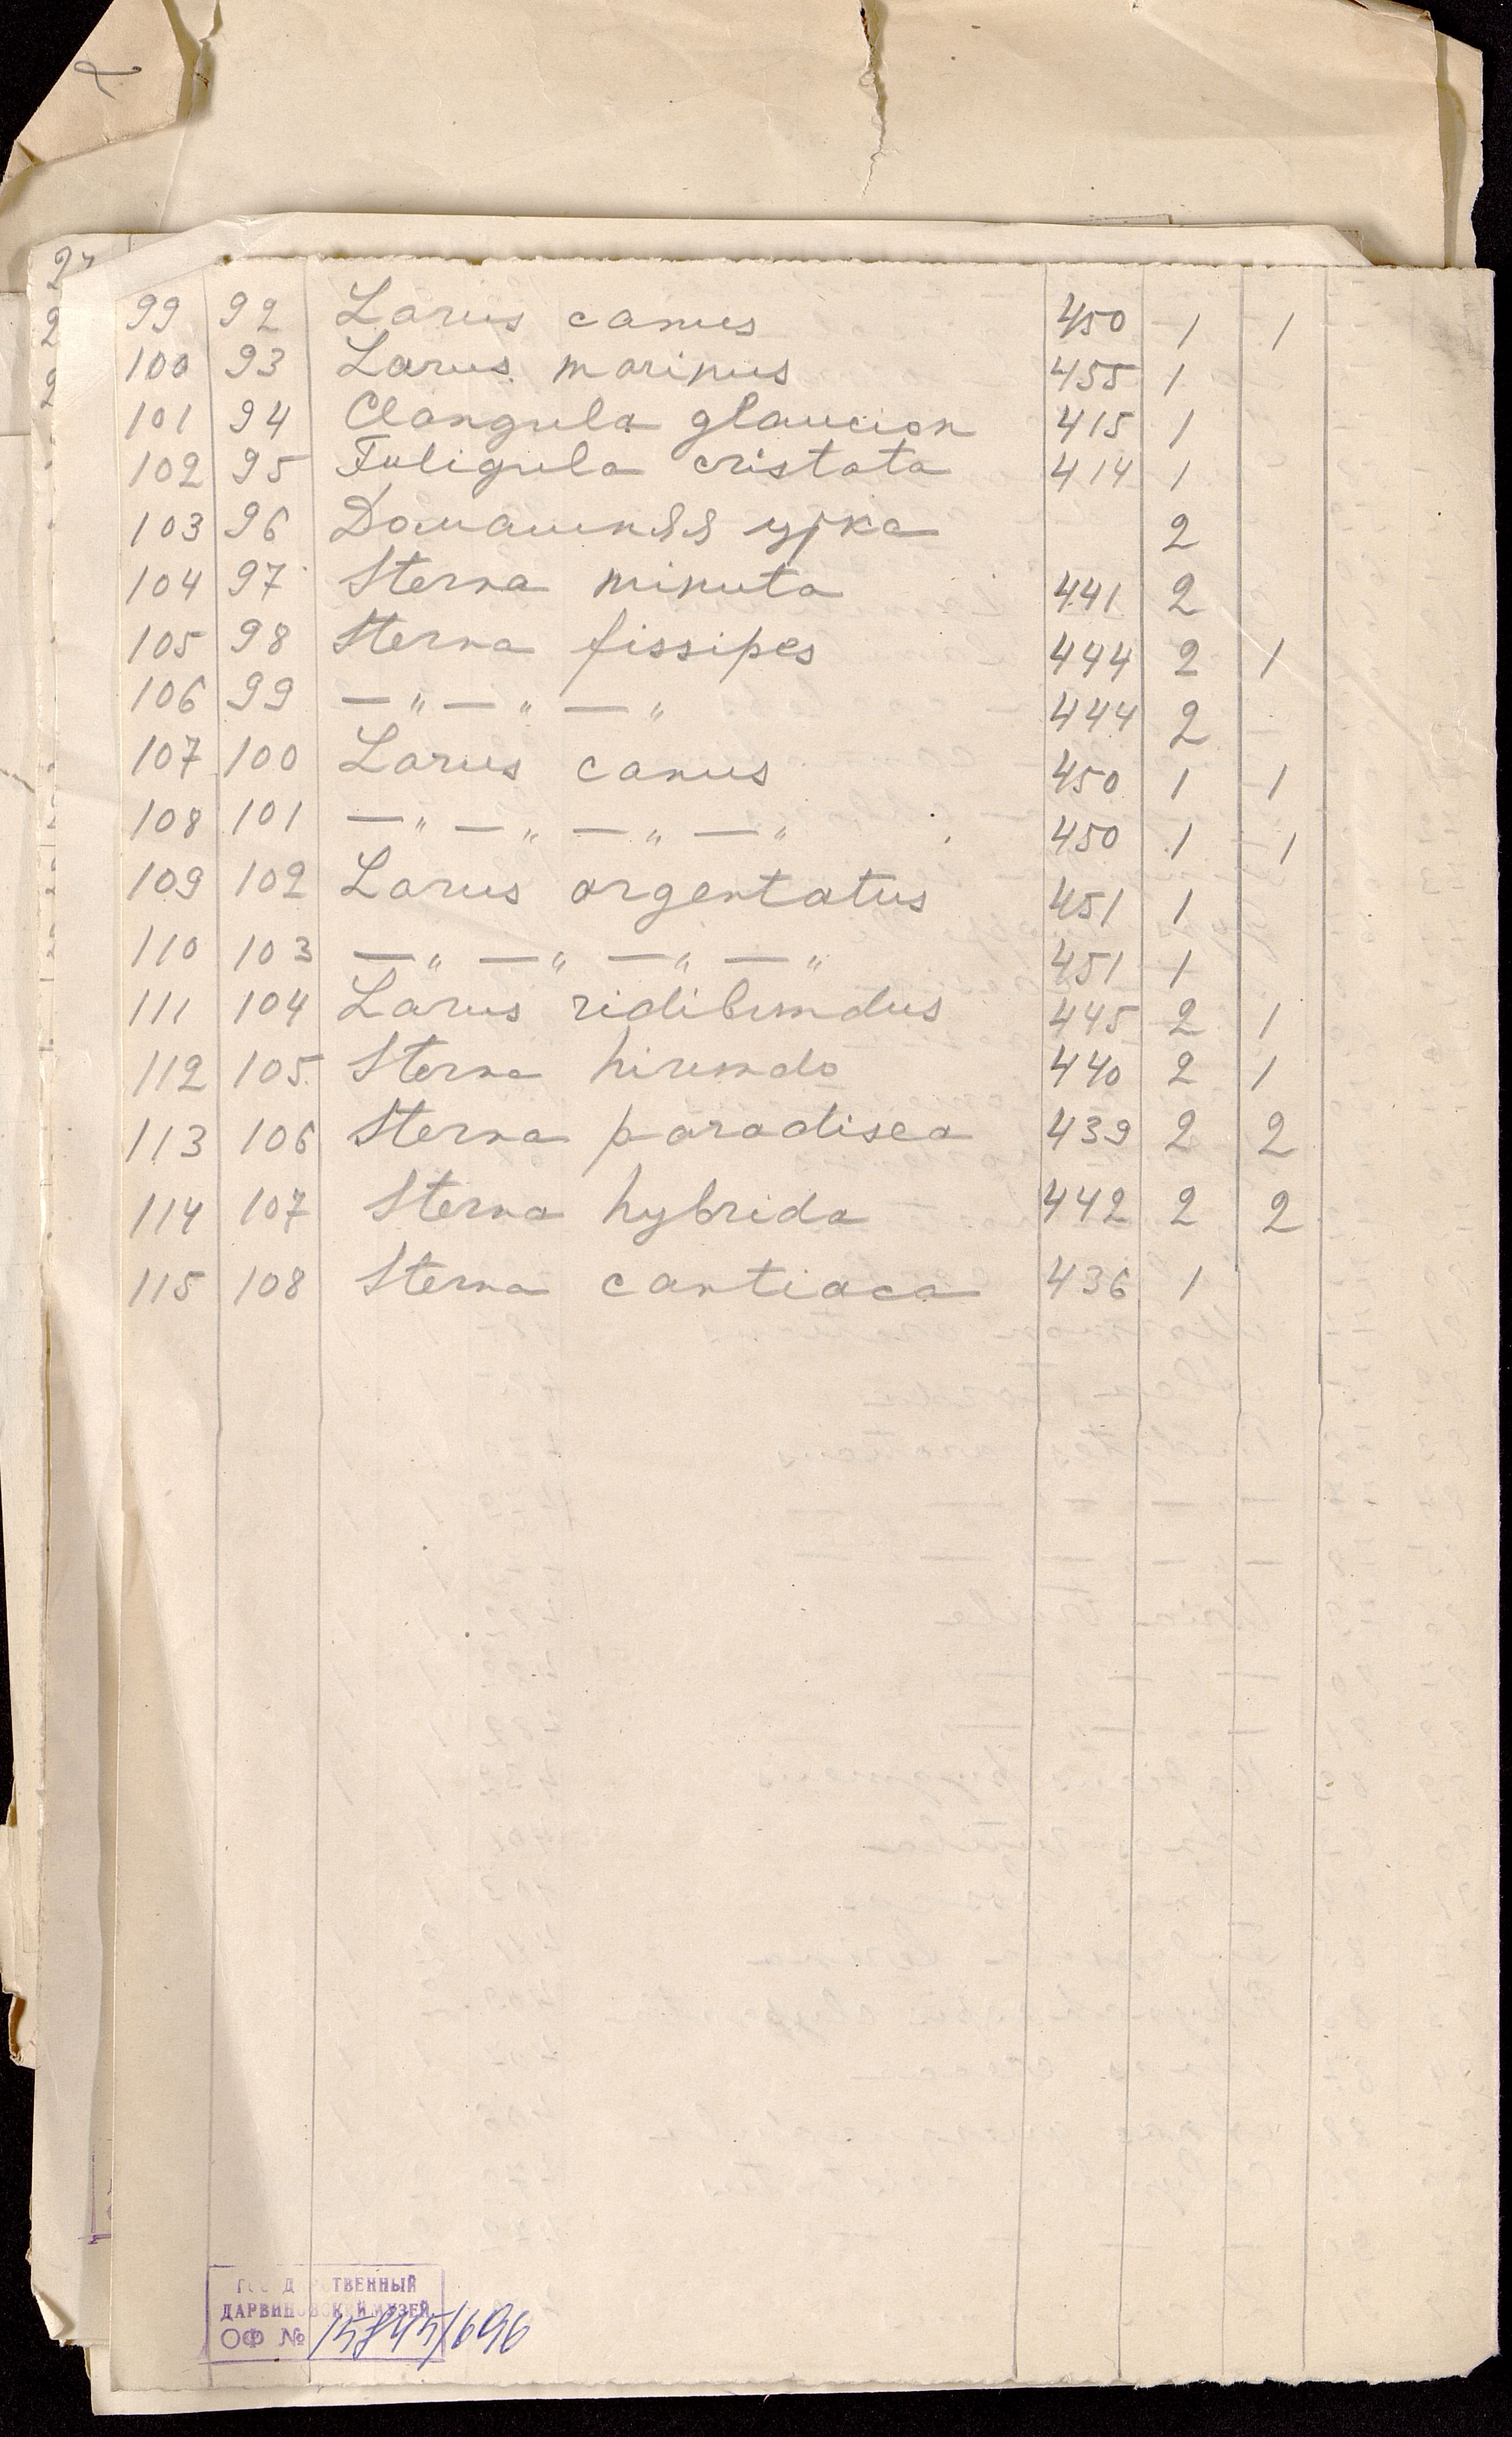 99 92 Larus canus 450 1 1
100 93 Larus marinus 455 1
101 94 Clangula glaucion 415 1
102 95 Fuligula cristata 414 1
103 96 Домашняя утка 2
104 97 Sterna minuta 441 2
105 98 Sterna fissipes 444 2 1
106 99 — " — " — " 444 2
107 100 Larus canus 450 1 1
108 101 — " — " — " — " 450 1 1
109 102 Larus argentatus 451 1
110 103 — " — " — " — " 451 1
111 104 Larus ridibundus 445 2 1
112 105 Sterna hirundo 440 2 1
113 106 Sterna paradisea 439 2 2
114 107 Sterna hybrida 442 2 2
115 108 Sterna cantiaca 436 1
ГОСУДАРСТВЕННЫЙ
ДАРВИНОВСКИЙ МУЗЕЙ
ОФ № 15845/696